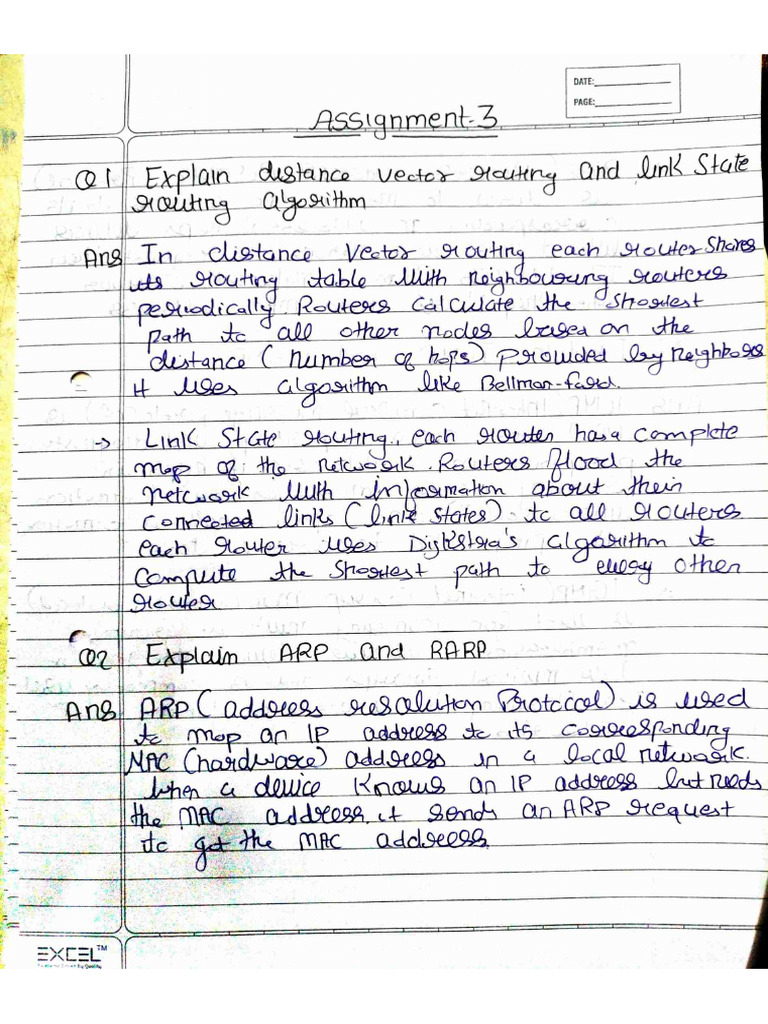 DATE:
PAGE:
Assignment-3
Q1 Explain distance vector routing and link State
routing algorithm
Ans In distance Vector routing each router Shares
its routing table with neighbouring routers
periodically Routers calculate the shortest
path to all other nodes based on the
distance (number of hops) provided by neighbors
it uses algorithm like Bellman-ford.
-> Link State routing, each router has a complete
map of the network. Routers flood the
network with information about their
connected links (link states) to all routers
each router uses Dijkstra's algorithm to
compute the shortest path to every other
router
Q2 Explain ARP and RARP
Ans ARP (address resolution Protocol) is used
to map an IP address to its corresponding
MAC (hardware) address in a local network.
when a device knows an IP address but needs
the MAC address, it sends an ARP request
to get the MAC address.
EXCEL™